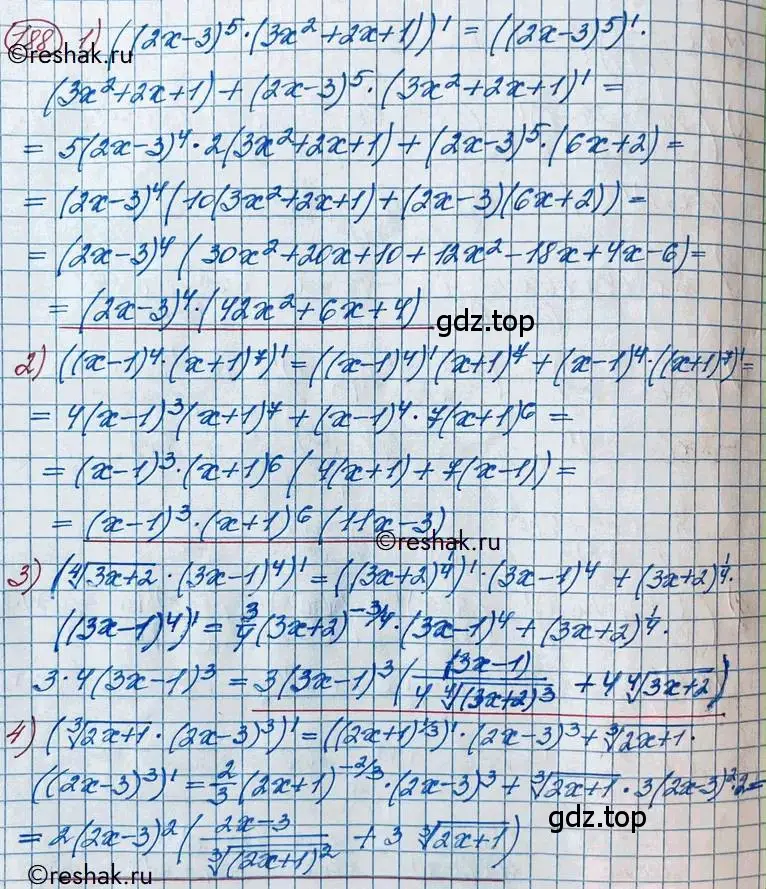 188 1) ((2x-3)⁵·(3x²+2x+1))' = ((2x-3)⁵)'·
©reshak.ru
(3x²+2x+1)+(2x-3)⁵·(3x²+2x+1)' =
= 5(2x-3)⁴·2(3x²+2x+1)+(2x-3)⁵·(6x+2) =
= (2x-3)⁴(10(3x²+2x+1)+(2x-3)(6x+2)) =
= (2x-3)⁴(30x²+20x+10+12x²-18x+4x-6) =
= (2x-3)⁴·(42x²+6x+4)
gdz.top
2) ((x-1)⁴·(x+1)⁷)' = ((x-1)⁴)'(x+1)⁷+(x-1)⁴·((x+1)⁷)' =
= 4(x-1)³(x+1)⁷+(x-1)⁴·7(x+1)⁶ =
= (x-1)³·(x+1)⁶(4(x+1)+7(x-1)) =
= (x-1)³·(x+1)⁶(11x-3)
©reshak.ru
3) (∜(3x+2)·(3x-1)⁴)' = ((3x+2)^(1/4))'·(3x-1)⁴+(3x+2)^(1/4)·
((3x-1)⁴)' = 3/4(3x+2)^(-3/4)·(3x-1)⁴+(3x+2)^(1/4)·
3·4(3x-1)³ = 3(3x-1)³((3x-1)/(4∜((3x+2)³))+4∜(3x+2))
4) (∛(2x+1)·(2x-3)³)' = ((2x+1)^(1/3))'·(2x-3)³+∛(2x+1)·
((2x-3)³)' = 2/3(2x+1)^(-2/3)·(2x-3)³+∛(2x+1)·3(2x-3)²·2 =
= 2(2x-3)²((2x-3)/(3∛((2x+1)²))+3∛(2x+1))
gdz.top
©reshak.ru